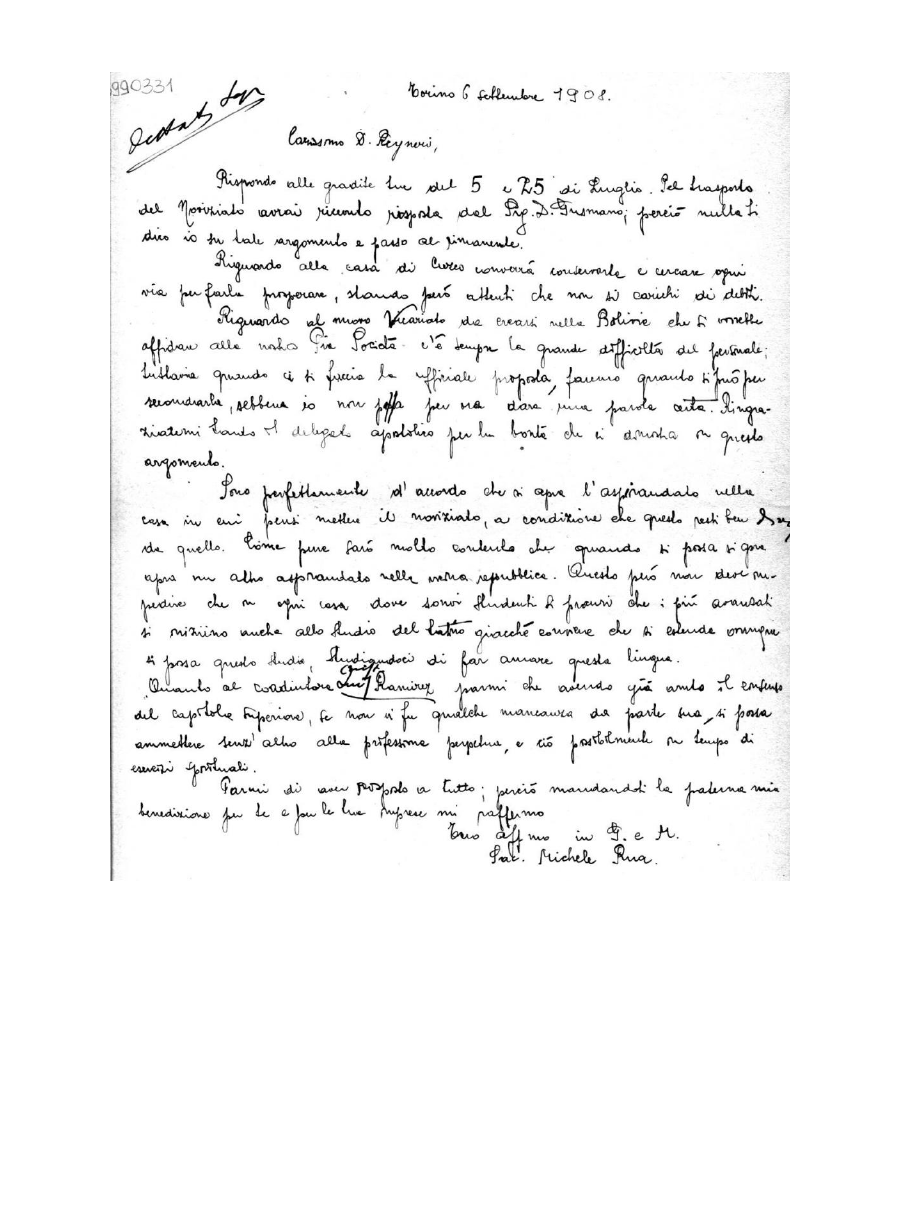 990331
Torino 6 settembre 1908.
Carissimo D. Reyneri,
Rispondo alle gradite tue del 5 e 25 di Luglio. Pel trasporto
del Noviziato avrai ricevuto risposta dal Sig. D. Gusmano; perciò nulla ti
dico io su tale argomento e passo al rimanente.
Riguardo alla casa di Cuzco converrà conservarla e cercare ogni
via per farla prosperare, stando però attenti che non si carichi di debiti.
Riguardo al nuovo Vicariato da crearsi nella Bolivie che si vorrebbe
affidare alla nostra Pia Società c'è sempre la grande difficoltà del personale;
tuttavia quando ci si faccia la ufficiale proposta, faremo quanto si può per
secondarla, sebbene io non possa per ora dare una parola certa. Ringra-
ziatemi tanto il delegato apostolico per la bontà che ci dimostra in questo
argomento.
Sono perfettamente d'accordo che si apra l'aspirandato nella
casa in cui pensi mettere il noviziato, a condizione che questo resti ben
da quello. Come pure sarò molto contento che quando si possa si
apra un altro aspirandato nella vicina repubblica. Questo però non deve im-
pedire che in ogni casa dove sonvi studenti si procuri che i più avanzati
si inizino anche allo studio del latino giacchè conviene che si estenda ovunque
si possa questo studio, studiandoci di far amare questa lingua.
Quanto al coadiutore Ramirez parmi che avendo già avuto il consenso
del capitolo superiore, se non vi fu qualche mancanza da parte sua, si possa
ammettere senz'altro alla professione perpetua, e ciò possibilmente in tempo di
esercizi spirituali.
Parmi di aver risposto a tutto; perciò mandandoti la paterna mia
benedizione per te e per le tue imprese mi raffermo
Tuo aff.mo in G. e M.
Sac. Michele Rua.